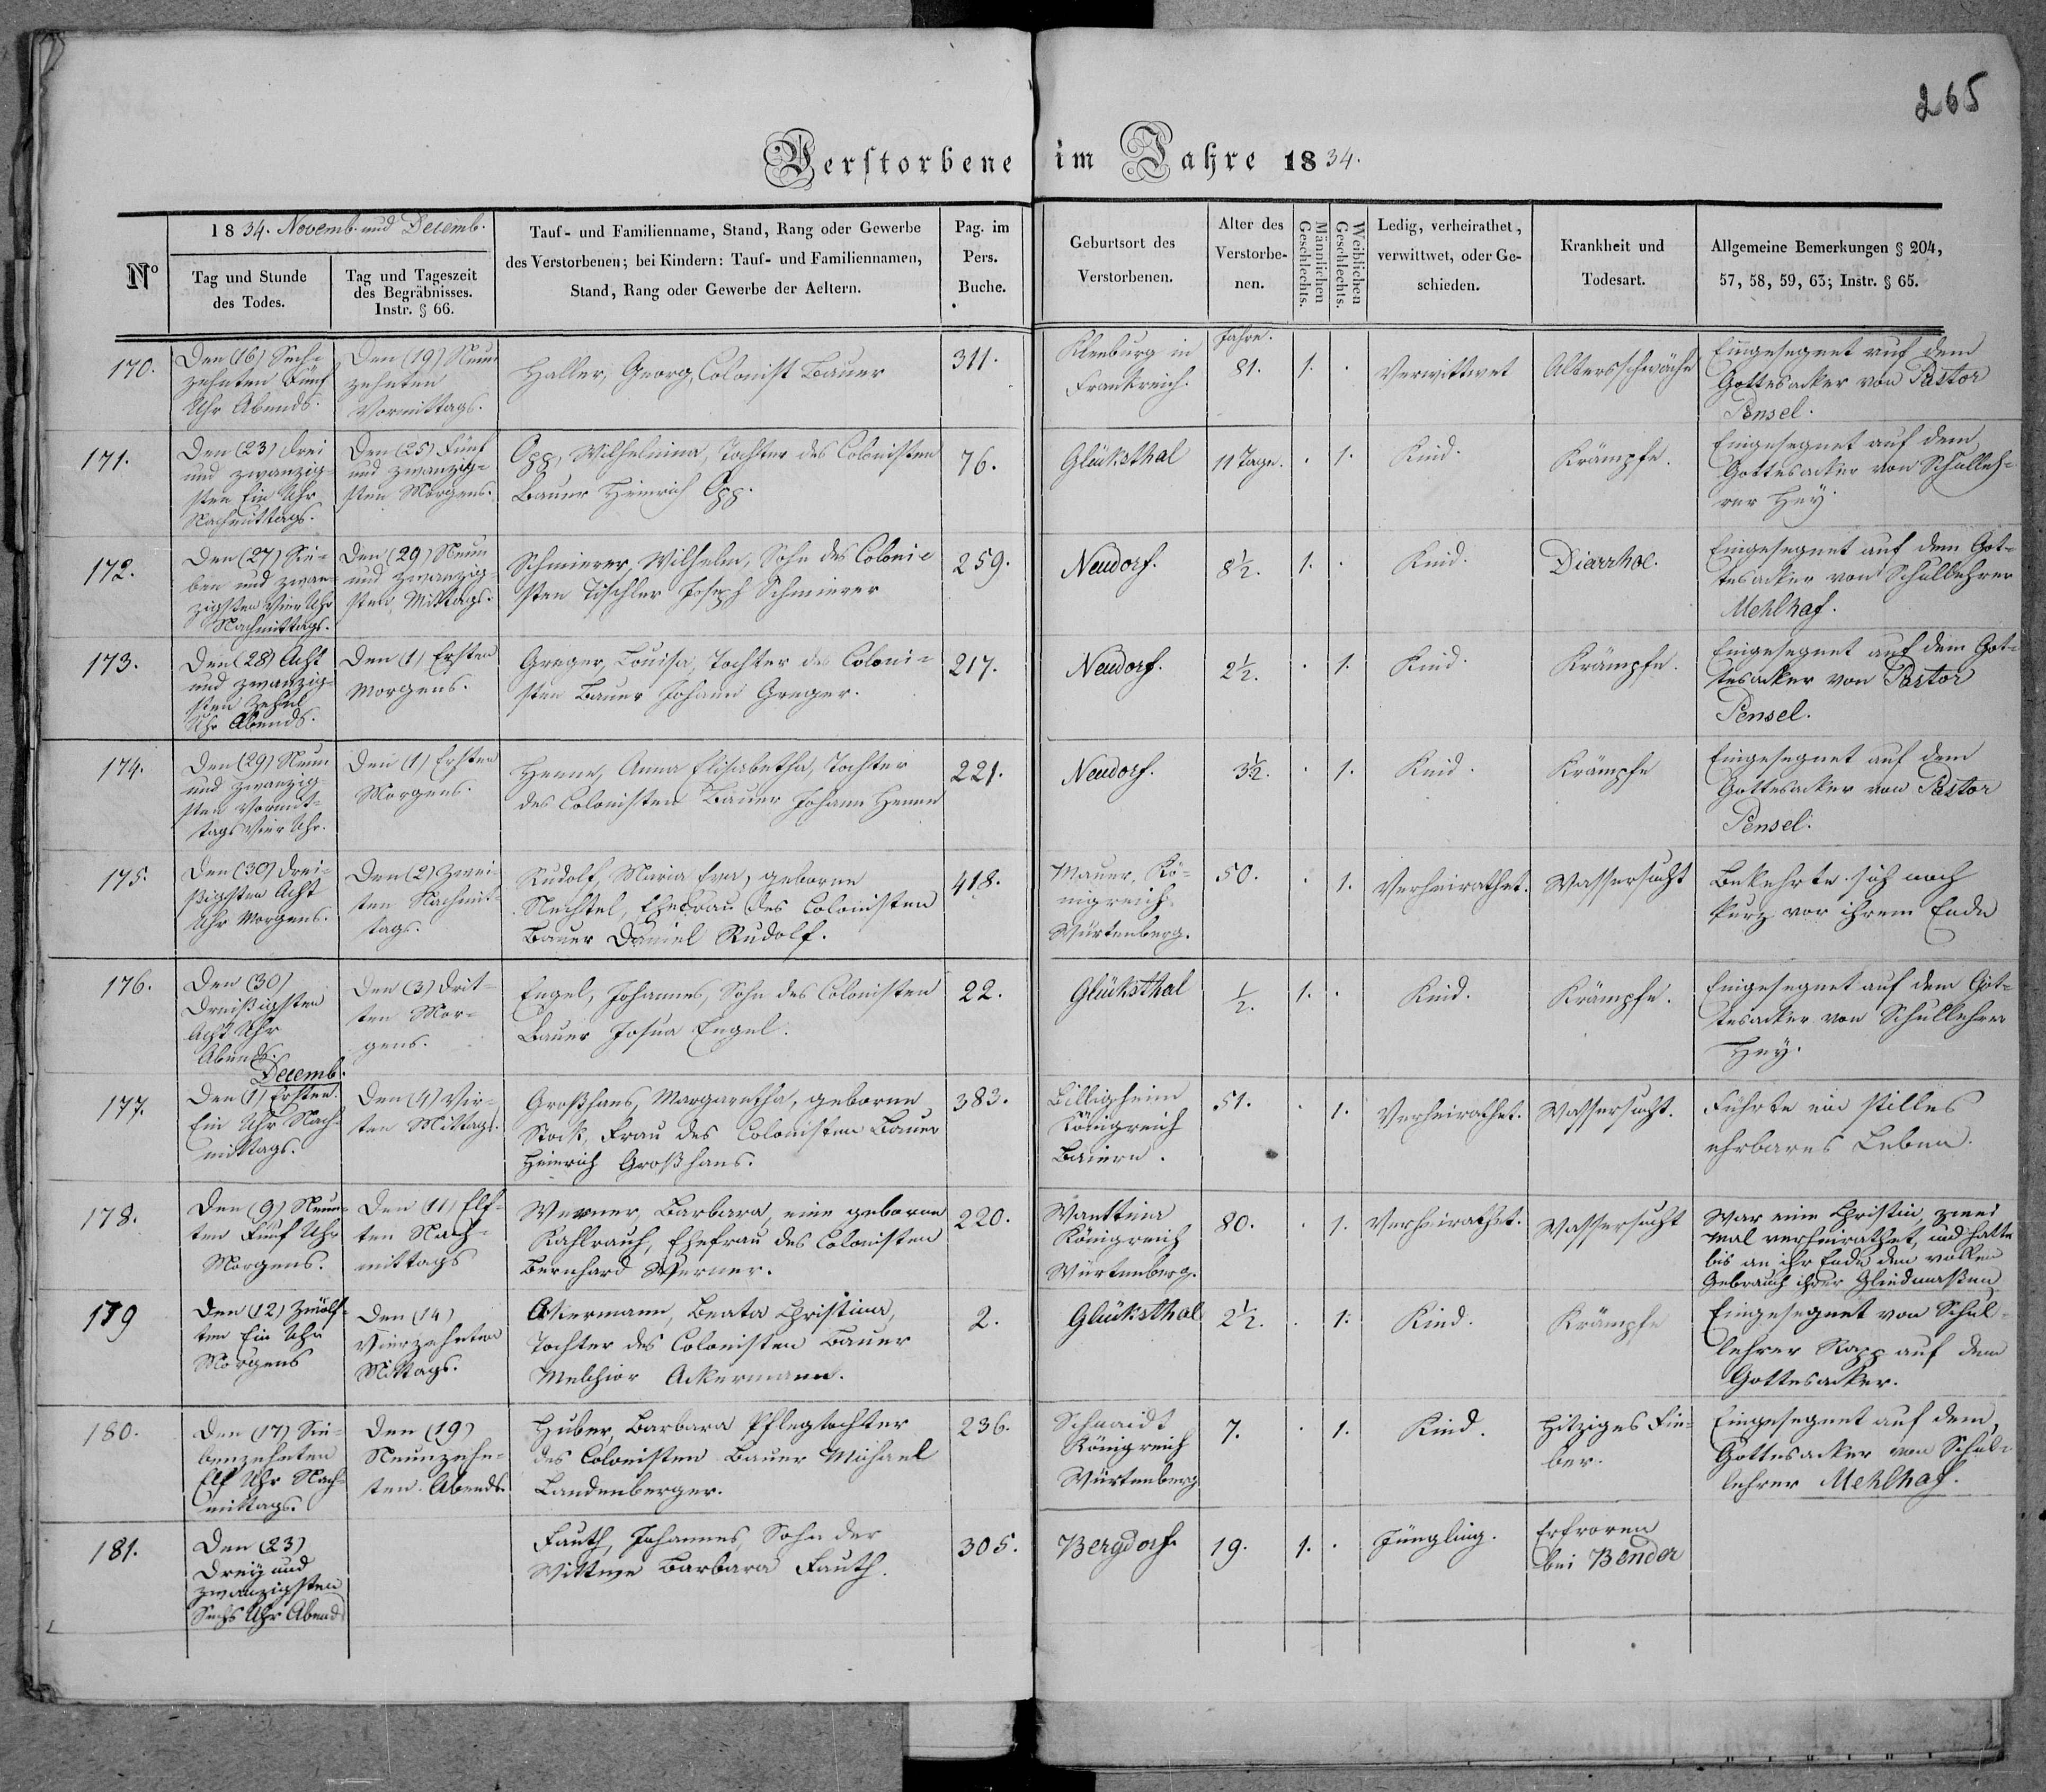 265
Verstorbene im Jahre 1834.
Nº
1834. Novemb. und Decemb.
Tag und Stunde
des Todes.
Tag und Tageszeit
des Begräbnisses.
Instr. § 66.
Tauf- und Familienname, Stand, Rang oder Gewerbe
des Verstorbenen; bei Kindern: Tauf- und Familiennamen,
Stand, Rang oder Gewerbe der Aeltern.
Pag. im
Pers.
Buche.
Geburtsort des
Verstorbenen.
Alter des
Verstorbe-
nen.
Männlichen
Geschlechts.
Weiblichen
Geschlechts.
Ledig, verheirathet,
verwittwet, oder Ge-
schieden.
Krankheit und
Todesart.
Allgemeine Bemerkungen § 204,
57, 58, 59, 63; Instr. § 65.
170.
Den (16) Sech-
zehnten Fünf
Uhr Abends.
Den (19) Neun
zehnten
Vormittags.
Haller, Georg, Colonist Bauer
311.
Kleeburg in
Frankreich.
Jahre.
81.
1.
.
Verwittwet
Altersschwäche
Eingesegnet auf dem
Gottesacker von Pastor
Pensel.
171.
Den (23) drei
und zwanzig-
sten Ein Uhr
Nachmittags.
Den (25) Fünf
und zwanzig-
sten Morgens.
Opp, Wilhelmina, Tochter des Colonisten
Bauer Heinrich Opp.
76.
Glüksthal
11 Tage.
.
1.
Kind.
Krämpfe.
Eingesegnet auf dem
Gottesacker von Schulleh-
rer Hey.
172.
Den (27) Sie-
ben und zwan-
zigsten Vier Uhr
Nachmittags.
Den (29) Neun
und zwanzig-
sten Mittags.
Schmierer, Wilhelm, Sohn des Coloni-
sten Tischler Joseph Schmierer
259.
Neudorf.
8½.
1.
.
Kind.
Diarrhoe.
Eingesegnet auf dem Got-
tesacker von Schullehrer
Mehlhaf.
173.
Den (28) Acht
und zwanzig-
sten Zehn
Uhr Abends.
Den (1) Ersten
Morgens.
Greger, Louisa, Tochter des Coloni-
sten Bauer Johann Greger.
217.
Neudorf.
2½.
.
1.
Kind.
Krämpfe.
Eingesegnet auf dem Got-
tesacker von Pastor
Pensel.
174.
Den (29) Neun
und zwanzig-
sten Vormit-
tags Vier Uhr.
Den (1) Ersten
Morgens.
Henne, Anna Elisabetha, Tochter
des Colonisten Bauer Johann Henne
221.
Neudorf.
3½.
.
1.
Kind.
Krämpfe
Eingesegnet auf dem
Gottesacker von Pastor
Pensel.
175.
Den (30) drei-
ßigsten Acht
Uhr Morgens.
Den (2) Zwei-
ten Nachmit-
tags.
Rudolf, Maria Eva, geborne
Nechtel, Ehefrau des Colonisten
Bauer Daniel Rudolf.
418.
Mauer, Kö-
nigreich
Würtenberg.
50.
.
1.
Verheirathet.
Wassersucht
Bekehrte sich noch
kurz vor ihrem Ende
176.
Den (30)
Dreißigsten
Acht Uhr
Abends.
Den (3) Drit-
ten Mor-
gens.
Engel, Johannes, Sohn des Colonisten
Bauer Josua Engel.
22.
Glüksthal
½.
1.
.
Kind.
Krämpfe.
Eingesegnet auf dem Got-
tesacker von Schullehrer
Hey.
Decemb.
177.
Den (1) Ersten.
Ein Uhr Nach-
mittags.
Den (4) Vier-
ten Mittags.
Großhans, Margaretha, geborne
Stock, Frau des Colonisten Bauer
Heinrich Großhans.
383.
Billigheim
Königreich
Baiern.
51.
.
1.
Verheirathet.
Wassersucht.
Führte ein stilles
ehrbares Leben.
178.
Den (9) Neun-
ten Fünf Uhr
Morgens.
Den (11) Elf-
ten Nach-
mittags
Werner, Barbara, eine geborne
Kahlrauh, Ehefrau des Colonisten
Bernhard Werner.
220.
Königreich
Würtenberg.
80.
.
1.
Verheirathet.
Wassersucht
War eine Christin, zwei
mal verheirathet, und hatte
bis an ihr Ende den vollen
Gebrauch ihrer Gliedmaßen
179
Den (12) Zwölf-
ten Ein Uhr
Morgens
Den (14)
Vierzehnten
Mittags.
Akermann, Beata Christina,
Tochter des Colonisten Bauer
Melchior Ackermann.
2.
Glüksthal
2½.
.
1.
Kind.
Krämpfe
Eingesegnet von Schul-
lehrer Rapp auf dem
Gottesacker.
180.
Den (17) Sie-
benzehnten
Elf Uhr Nach-
mittags.
Den (19)
Neunzehn-
ten Abends.
Huber, Barbara Pflegtochter
des Colonisten Bauer Michael
Landenberger.
236.
Schnaidt
Königreich
Würtenberg
7.
.
1.
Kind.
Hitziges Fie-
ber.
Eingesegnet auf dem
Gottesacker von Schul-
lehrer Mehlhaf.
181.
Den (23)
Drey und
zwanzigsten
Sechs Uhr Abends
Fauth, Johannes, Sohn der
Wittwe Barbara Fauth.
305.
Bergdorf.
19.
1.
.
Jüngling.
Erfroren
bei Bender